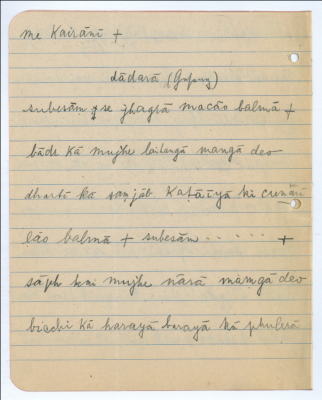 me Kairānī +
dādarā (Gupang)
subesām se jhagṛā macāo balmā +
bādr kā mujhe lailangā mangā deo
dhartī kā saṃjāb kaṭāīyā kī cunārī
lāo balmā + subesām . . . . . +
sāph kī mujhe nārā māṃgā deo
bicchī kā harayā barayā kā phulerā